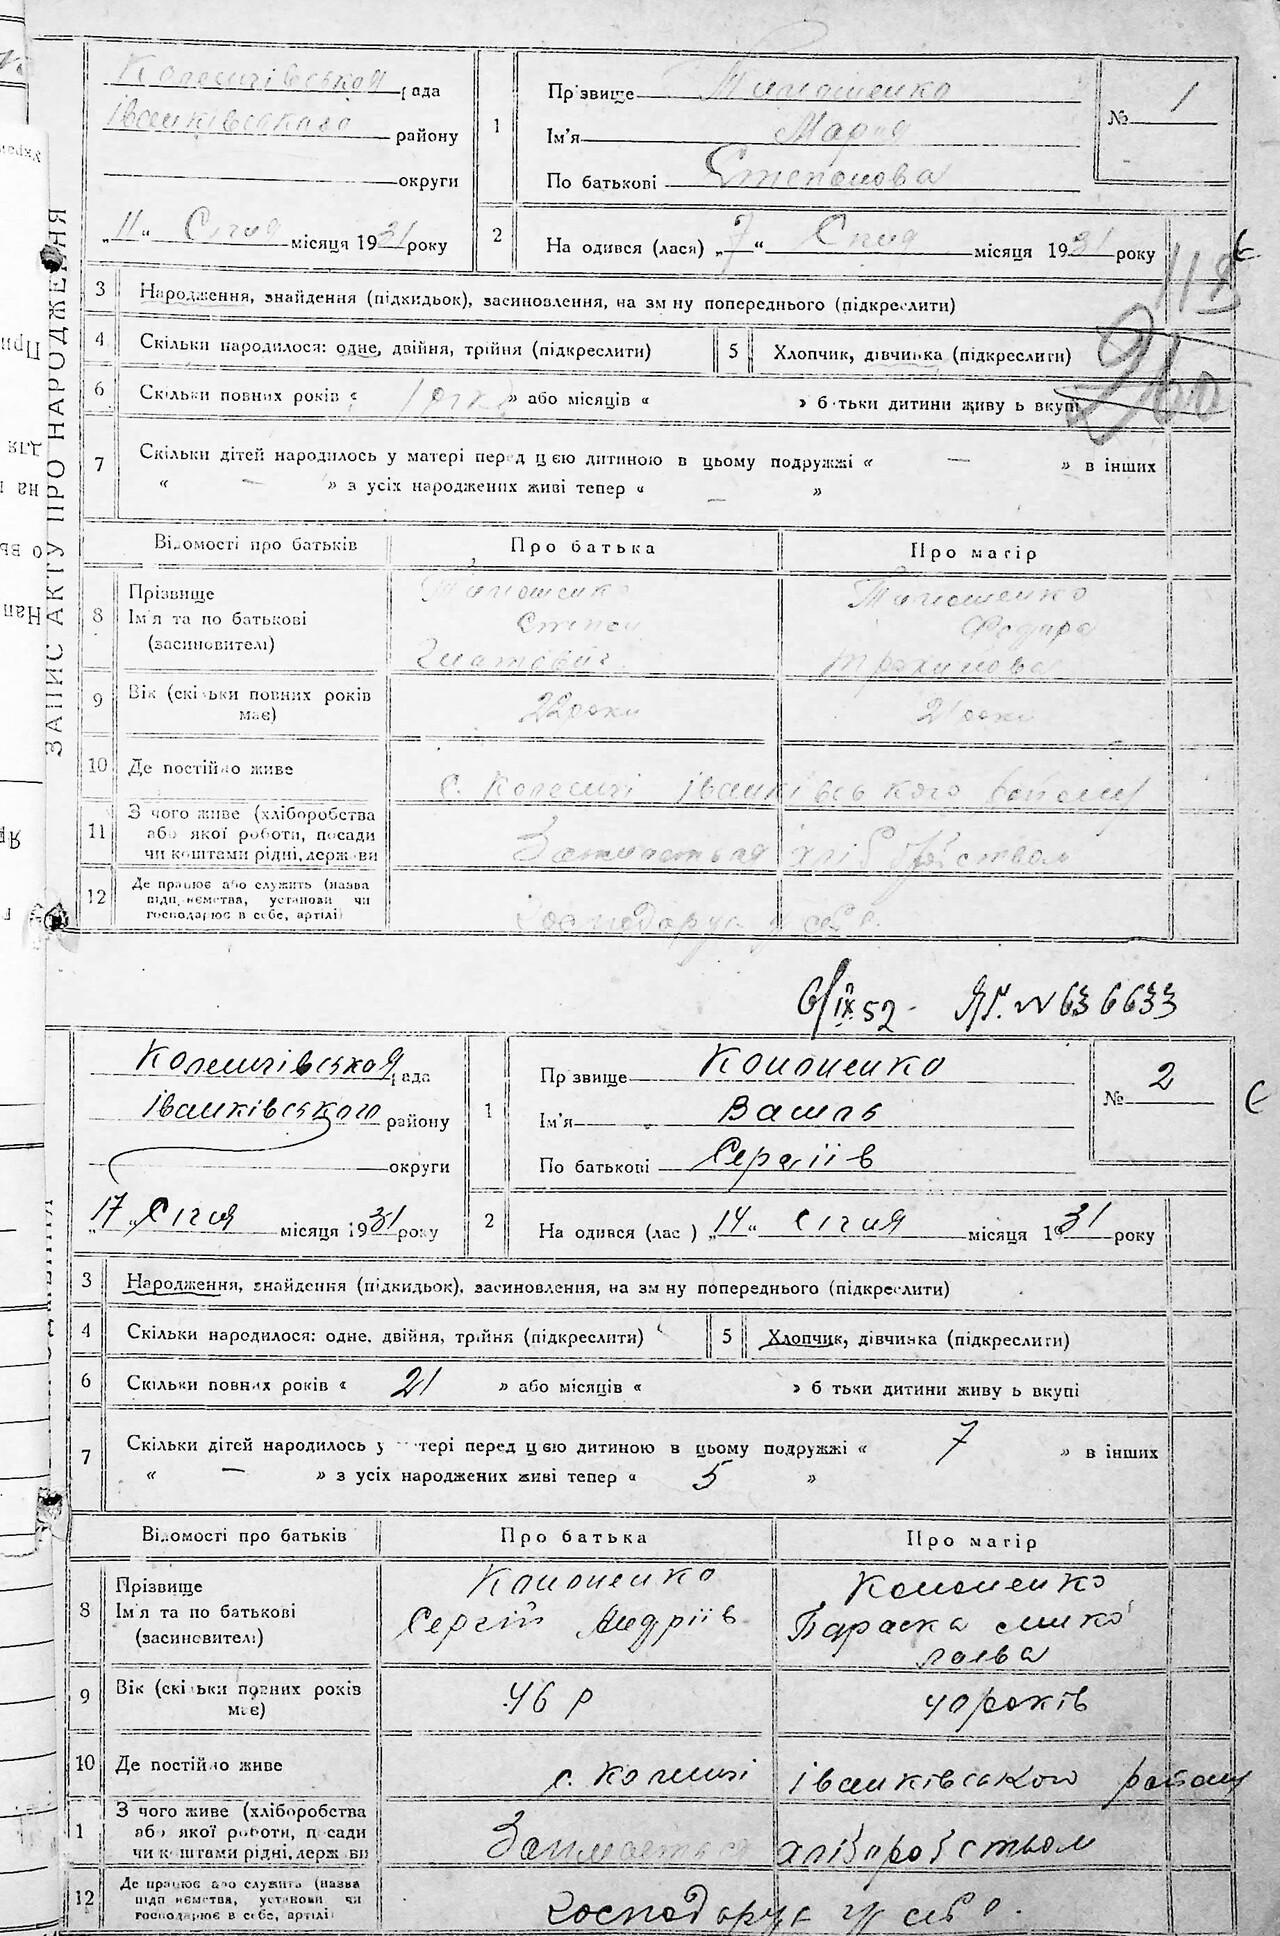 ЗАПИС АКТУ ПРО НАРОДЖЕННЯ
рада
Іванківського району
округи
„11“ Січня місяця 1931 року
1
Прізвище Тимошенко
Ім'я Марія
По батькові Степанова
№ 1
2
На одився (лася) „7“ Січня місяця 1931 року
3 Народження, знайдення (підкидьок), засиновлення, на зм ну попереднього (підкреслити)
4 Скільки народилося: одне, двійня, трійня (підкреслити)
5 Хлопчик, дівчинка (підкреслити)
260
6 Скільки повних років « 1 рік » або місяців « » б тьки дитини живу ь вкупі
7 Скільки дітей народилось у матері перед цією дитиною в цьому подружжі « — » в інших
« — » з усіх народжених живі тепер « — »
Відомості про батьків Про батька Про матір
8 Прізвище
Ім'я та по батькові
(засиновителі)
Тимошенко
Степан
Тимошенко
Федора
9 Вік (скільки повних років має) 22 роки 21 роки
10 Де постійно живе с. Іванківського району
11 З чого живе (хліборобства
або якої роботи, посади
чи коштами рідні, держави
Займається хліборобством
12 Де працює або служить (назва
підприємства, установи чи
господарює в себе, артілі)
Господарує у себе
6/IX 52 - ЯГ. № 636633
рада
Іванківського району
округи
„17“ Січня місяця 1931 року
1
Пр звище Кононенко
Ім'я Василь
По батькові Сергіїв
№ 2
2
На одився (лас ) „14“ Січня місяця 1931 року
3 Народження, знайдення (підкидьок), засиновлення, на зм ну попереднього (підкреслити)
4 Скільки народилося: одне, двійня, трійня (підкреслити)
5 Хлопчик, дівчинка (підкреслити)
6 Скільки повних років « 21 » або місяців « » б тьки дитини живу ь вкупі
7 Скільки дітей народилось у матері перед цією дитиною в цьому подружжі « 7 » в інших
« — » з усіх народжених живі тепер « 5 »
Відомості про батьків Про батька Про матір
8 Прізвище
Ім'я та по батькові
(засиновителі)
Кононенко
Сергій Андріїв
Кононенко
Параска Мико
лаєва
9 Вік (скільки повних років має) 46 р 40 років
10 Де постійно живе с. Іванківського району
1 З чого живе (хліборобства
або якої роботи, п сади
чи к штами рідні, держ ви
Займається хліборобством
12 Де працює або служить (назва
підп иємства, установи чи
господарює в себе, артілі
Господарує у себе.